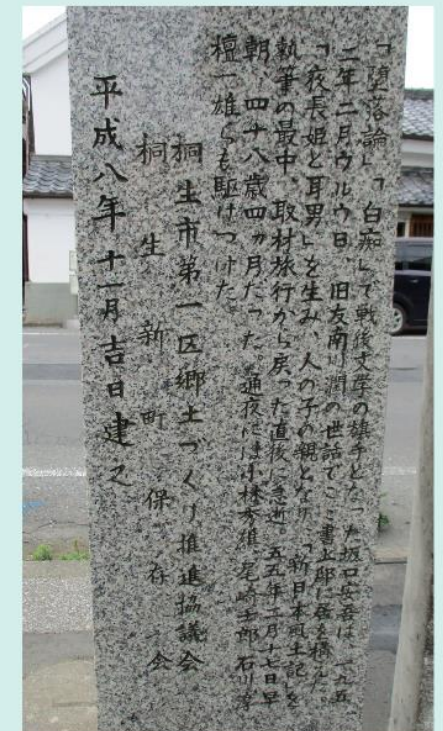 「堕落論」「白痴」で戦後文学の旗手となった坂口安吾は、一九五
二年二月ウルウ日、旧友南川潤の世話でここ書上邸に居を構えた。
「夜長姫と耳男」を生み、人の子の親となり、「新日本風土記」を
執筆の最中、取材旅行から戻った直後に急逝。五五年二月十七日早
朝、四十八歳四ヵ月だった。通夜には小林秀雄、尾崎士郎、石川淳
檀一雄らも駆けつけた。
桐生市第一区郷土づくり推進協議会
桐生新町保存会
平成八年十一月吉日建之